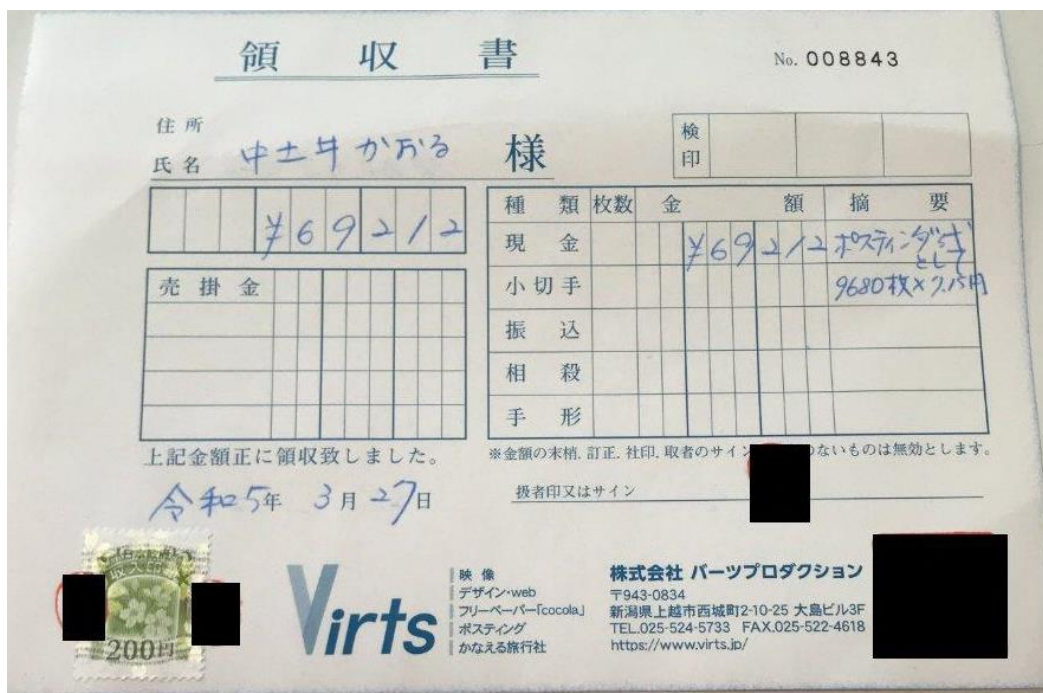 領収書
No. 008843
住所
氏名 中土井かおる 様
検印
¥69212
種類 枚数 金額 摘要
現金 ¥69212 ポスティング代
として
小切手 9680枚×7.15円
売掛金
振込
相殺
手形
上記金額正に領収致しました。
※金額の末梢. 訂正. 社印. 取者のサイン のないものは無効とします。
令和5年 3月27日
扱者印又はサイン
収入印紙
200円
Virts
映像
デザイン・web
フリーペーパー「cocola」
ポスティング
かなえる旅行社
株式会社 バーツプロダクション
〒943-0834
新潟県上越市西城町2-10-25 大島ビル3F
TEL.025-524-5733 FAX.025-522-4618
https://www.virts.jp/